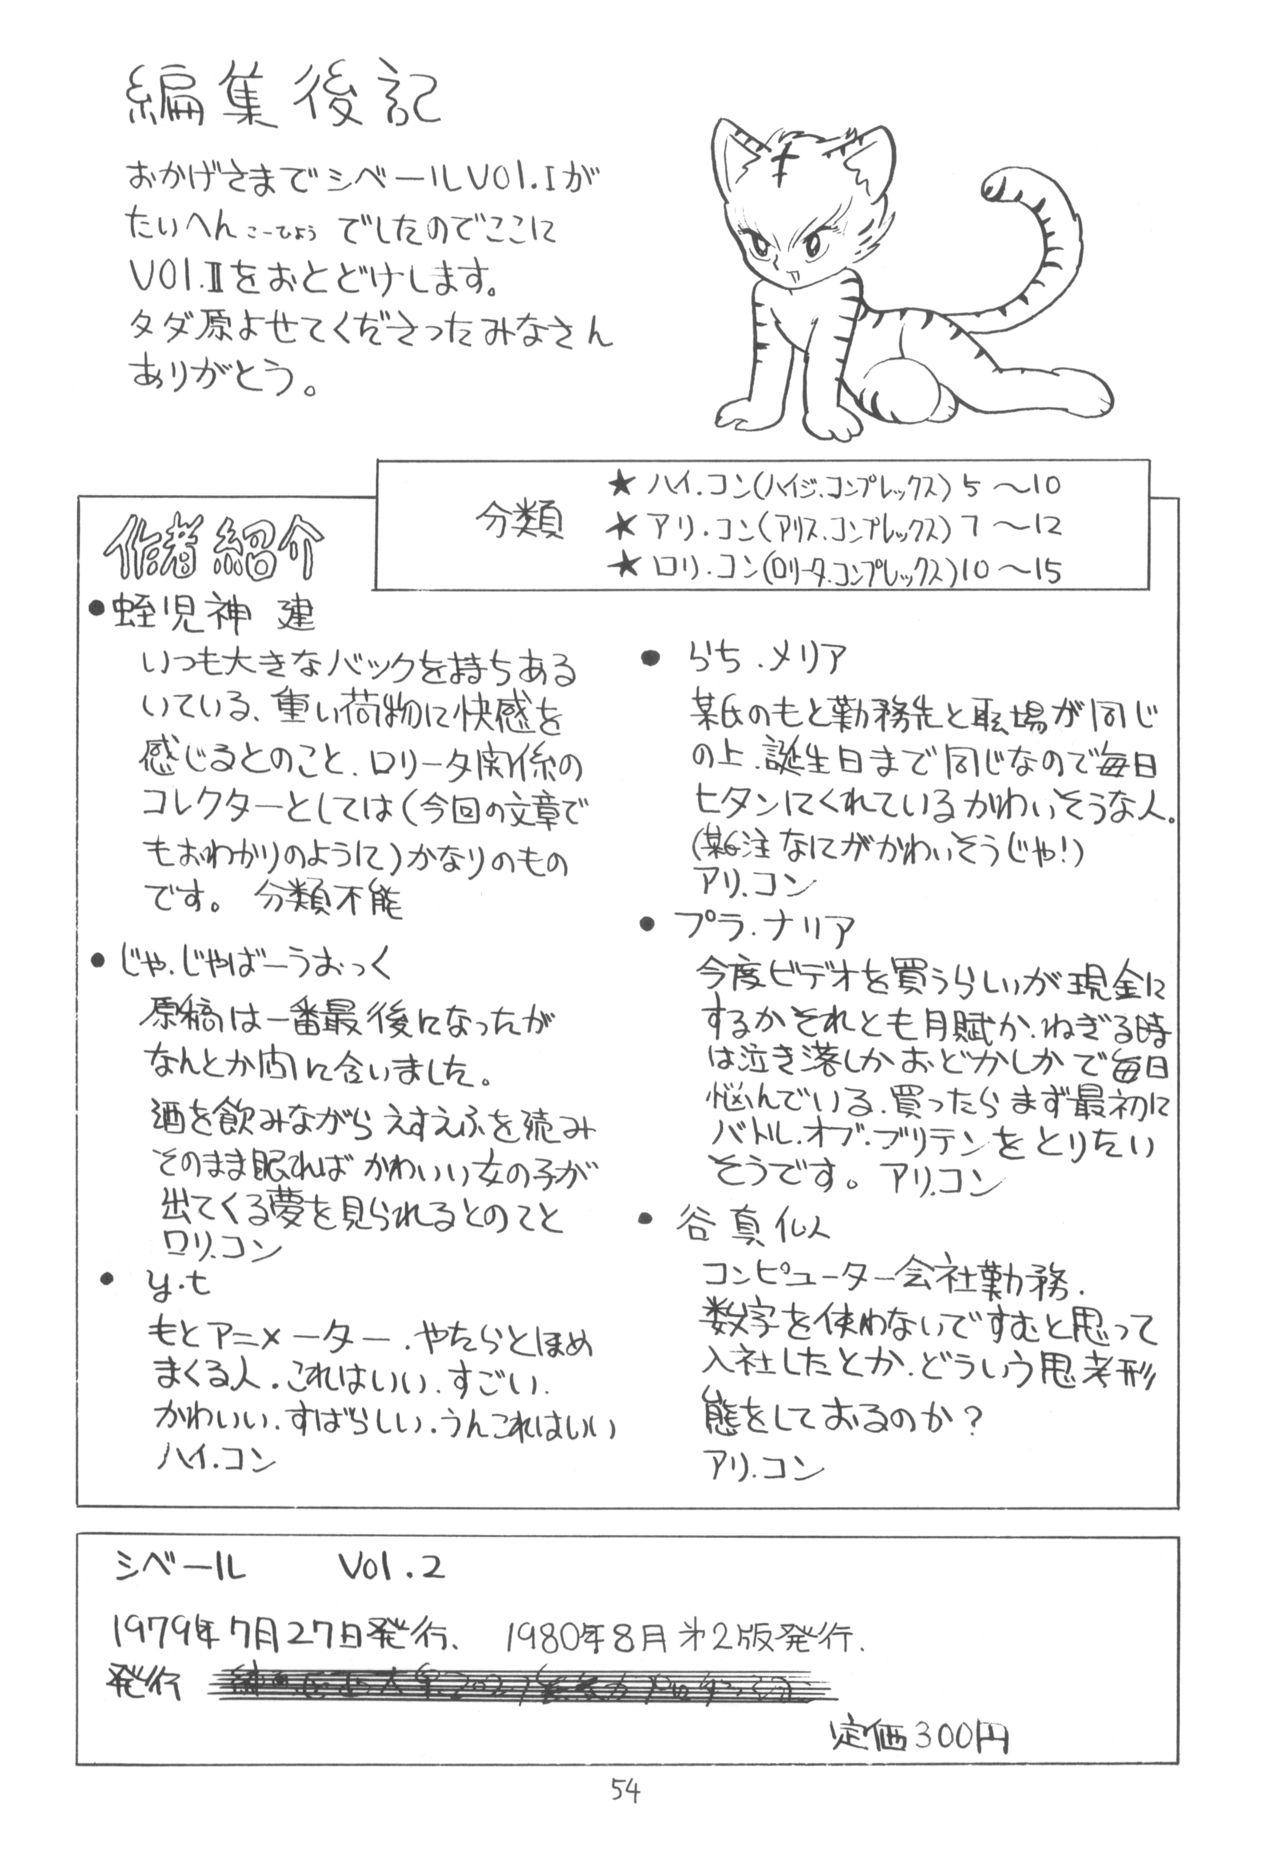 編集後記
おかげさまでシベールVOl.Iが
たいへん こーひょう でしたのでここに
VOl.Ⅱをおとどけします。
タダ原よせてくださったみなさん
ありがとう。
分類
★ ハイ.コン(ハイジ.コンプレックス) 5 〜10
★ アリ.コン(アリス.コンプレックス) 7 〜12
★ ロリ.コン(ロリータ.コンプレックス)10 〜15
作者紹介
●蛭児神 建
いつも大きなバックを持ちある
いている、重い荷物に快感を
感じるとのこと、ロリータ関係の
コレクターとしては(今回の文章で
もおわかりのように)かなりのもの
です。 分類不能
●じゃ.じゃばーうおっく
原稿は一番最後になったが
なんとか間に合いました。
酒を飲みながらえすえふを読み
そのまま眠ればかわいい女の子が
出てくる夢を見られるとのこと
ロリ.コン
● y.t
もとアニメーター.やたらとほめ
まくる人.これはいい.すごい.
かわいい.すばらしい.うんこれはいい
ハイ.コン
● らち.メリア
某氏のもと勤務先と職場が同じ
の上.誕生日まで同じなので毎日
ヒタンにくれているかわいそうな人。
(某氏注 なにがかわいそうじゃ!)
アリ.コン
● プラ.ナリア
今度ビデオを買うらしいが現金に
するかそれとも月賦か.ねぎる時
は泣き落しかおどかしかで毎日
悩んでいる.買ったらまず最初に
バトル.オブ.ブリテンをとりたい
そうです。 アリ.コン
● 谷 真似人
コンピューター会社勤務.
数字を使わないですむと思って
入社したとか.どういう思考形
態をしておるのか?
アリ.コン
シベール Vol.2
1979年7月27日発行、 1980年8月才2版発行.
発行
定価300円
54